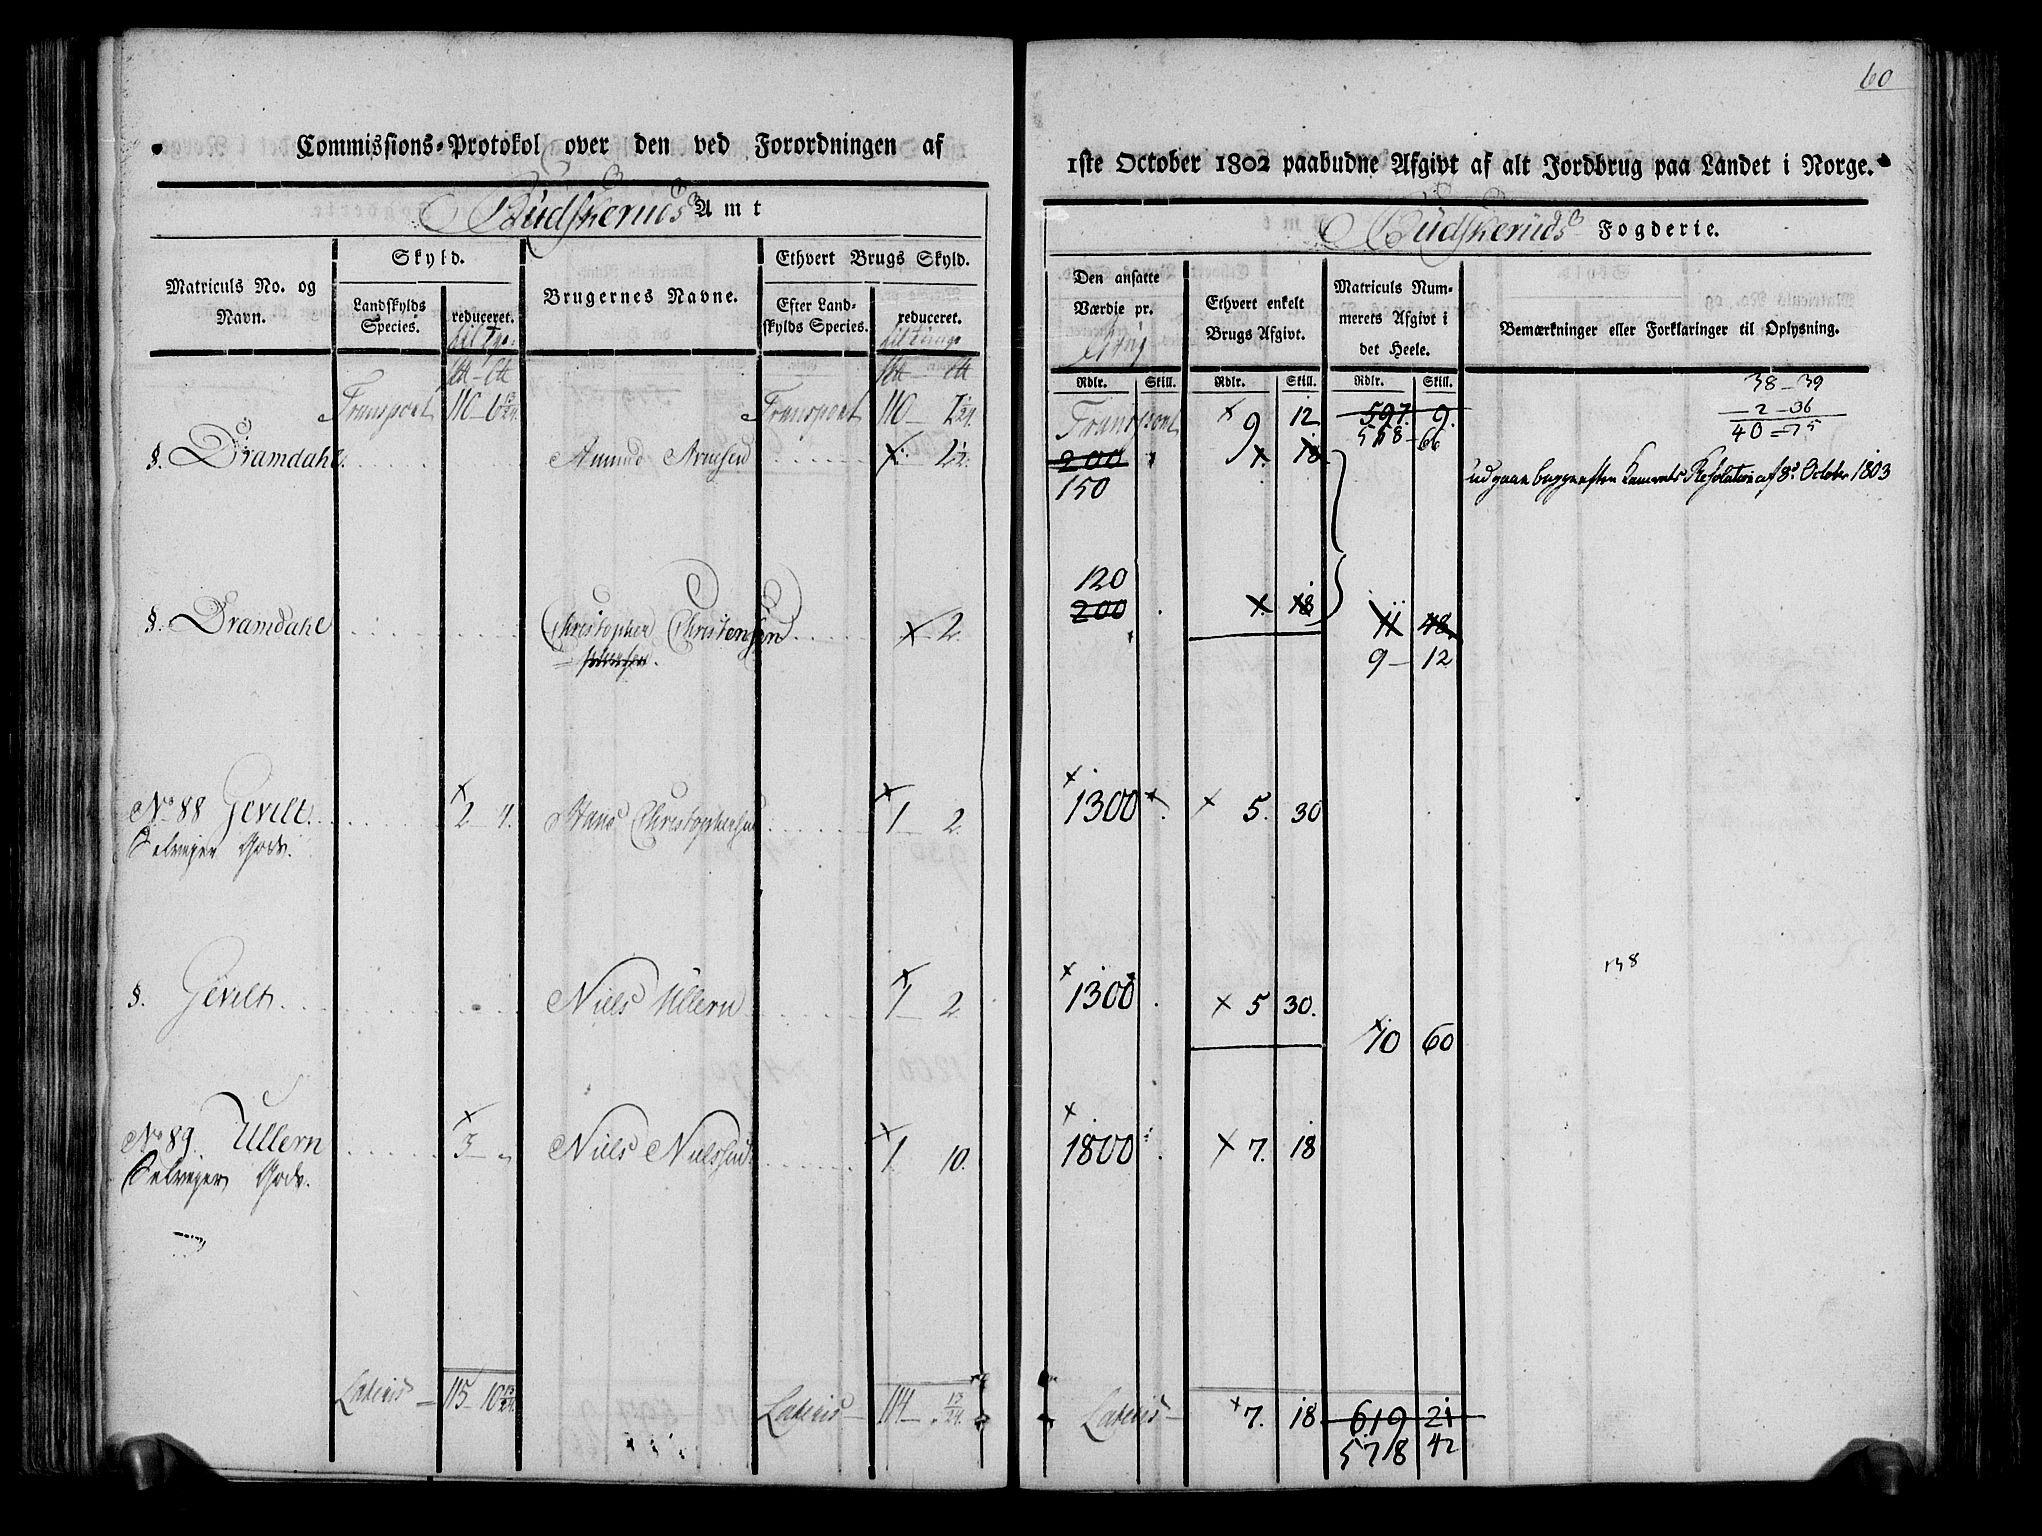 60
Commissions-Protokol over den ved Forordningen af
1ste October 1802 paabudne Afgivt af alt Jordbrug paa Landet i Norge.
Budskeruds Amt
Budskeruds Fogderie.
Matriculs No. og Navn.
Skyld.
Landskylds Species.
reduceret.
Brugernes Navne.
Ethvert Brugs Skyld.
Efter Landskylds Species.
reduceret.
Den ansatte Værdie pr.
Ethvert enkelt Brugs Afgivt.
Matriculs Nummerets Afgivt i det Heele.
Bemærkninger eller Forklaringer til Oplysning.
Rdlr. Skill. Rdlr. Skill. Rdlr. Skill.
38-39
2-36
40-75
Transport 110-6 13/24 Transport 110- Transport × 9 12 597. 9.
568-66
§. Dramdahl Amund Arnesen 200 1. 18
150
udgaae begge efter Kamerets Resolution af 8de October 1803
120
§. Dramdahl Christopher Christensen × 2. 200 1. 18 11 48.
9-12
No 88 Gevelt. 2-4. Hans Christophersen 1-2. 1300 × 5. 30
Selveyer Gods.
138
§. Gevelt. Niels Ullern 1-2. 1300 × 5 30.
10 60
No 89. Ullern 3-" Niels Nielsen 1-10. 1800 × 7. 18
Selveyer Gods.
Lateris 115-10 13/24. Lateris 114-" 13/24. Lateris × 7. 18 619 21
578 42